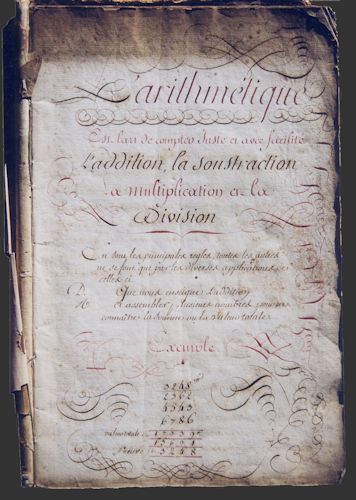 L'arithmétique
Est l'art de compter Juste et avec facilité
L'addition, la soustraction
La multiplication et la
Division
En sont les principales regles, toutes les autres
ne se font que par les diverses applications de
celles ci
D. Que nous enseigne L'addition
R. a assembler plusieurs nombres pour
connaître la somme ou la valeur totale
Exemple
3248
2362
4543
6786
valeur totale
Preuve 3248